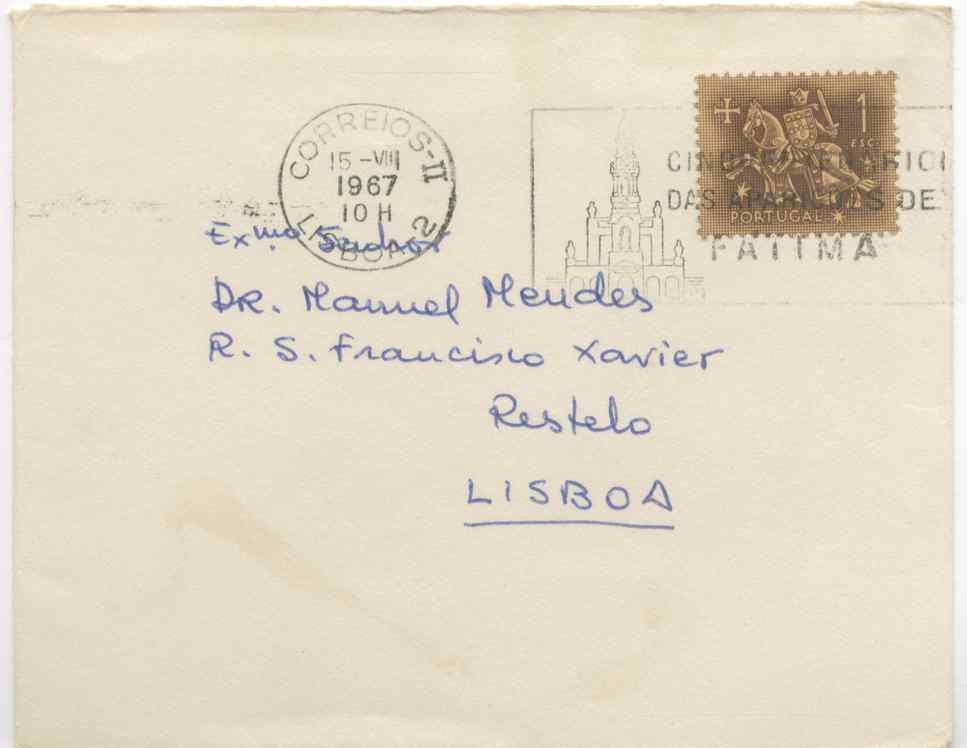 CORREIOS-II
15-VIII
1967
10 H
LISBOA 2
1
ESC.
PORTUGAL
CINQUENTENÁRIO
DAS APARIÇÕES DE
FATIMA
Exmo. Senhor
DR. Manuel Mendes
R. S. Francisco Xavier
Restelo
LISBOA